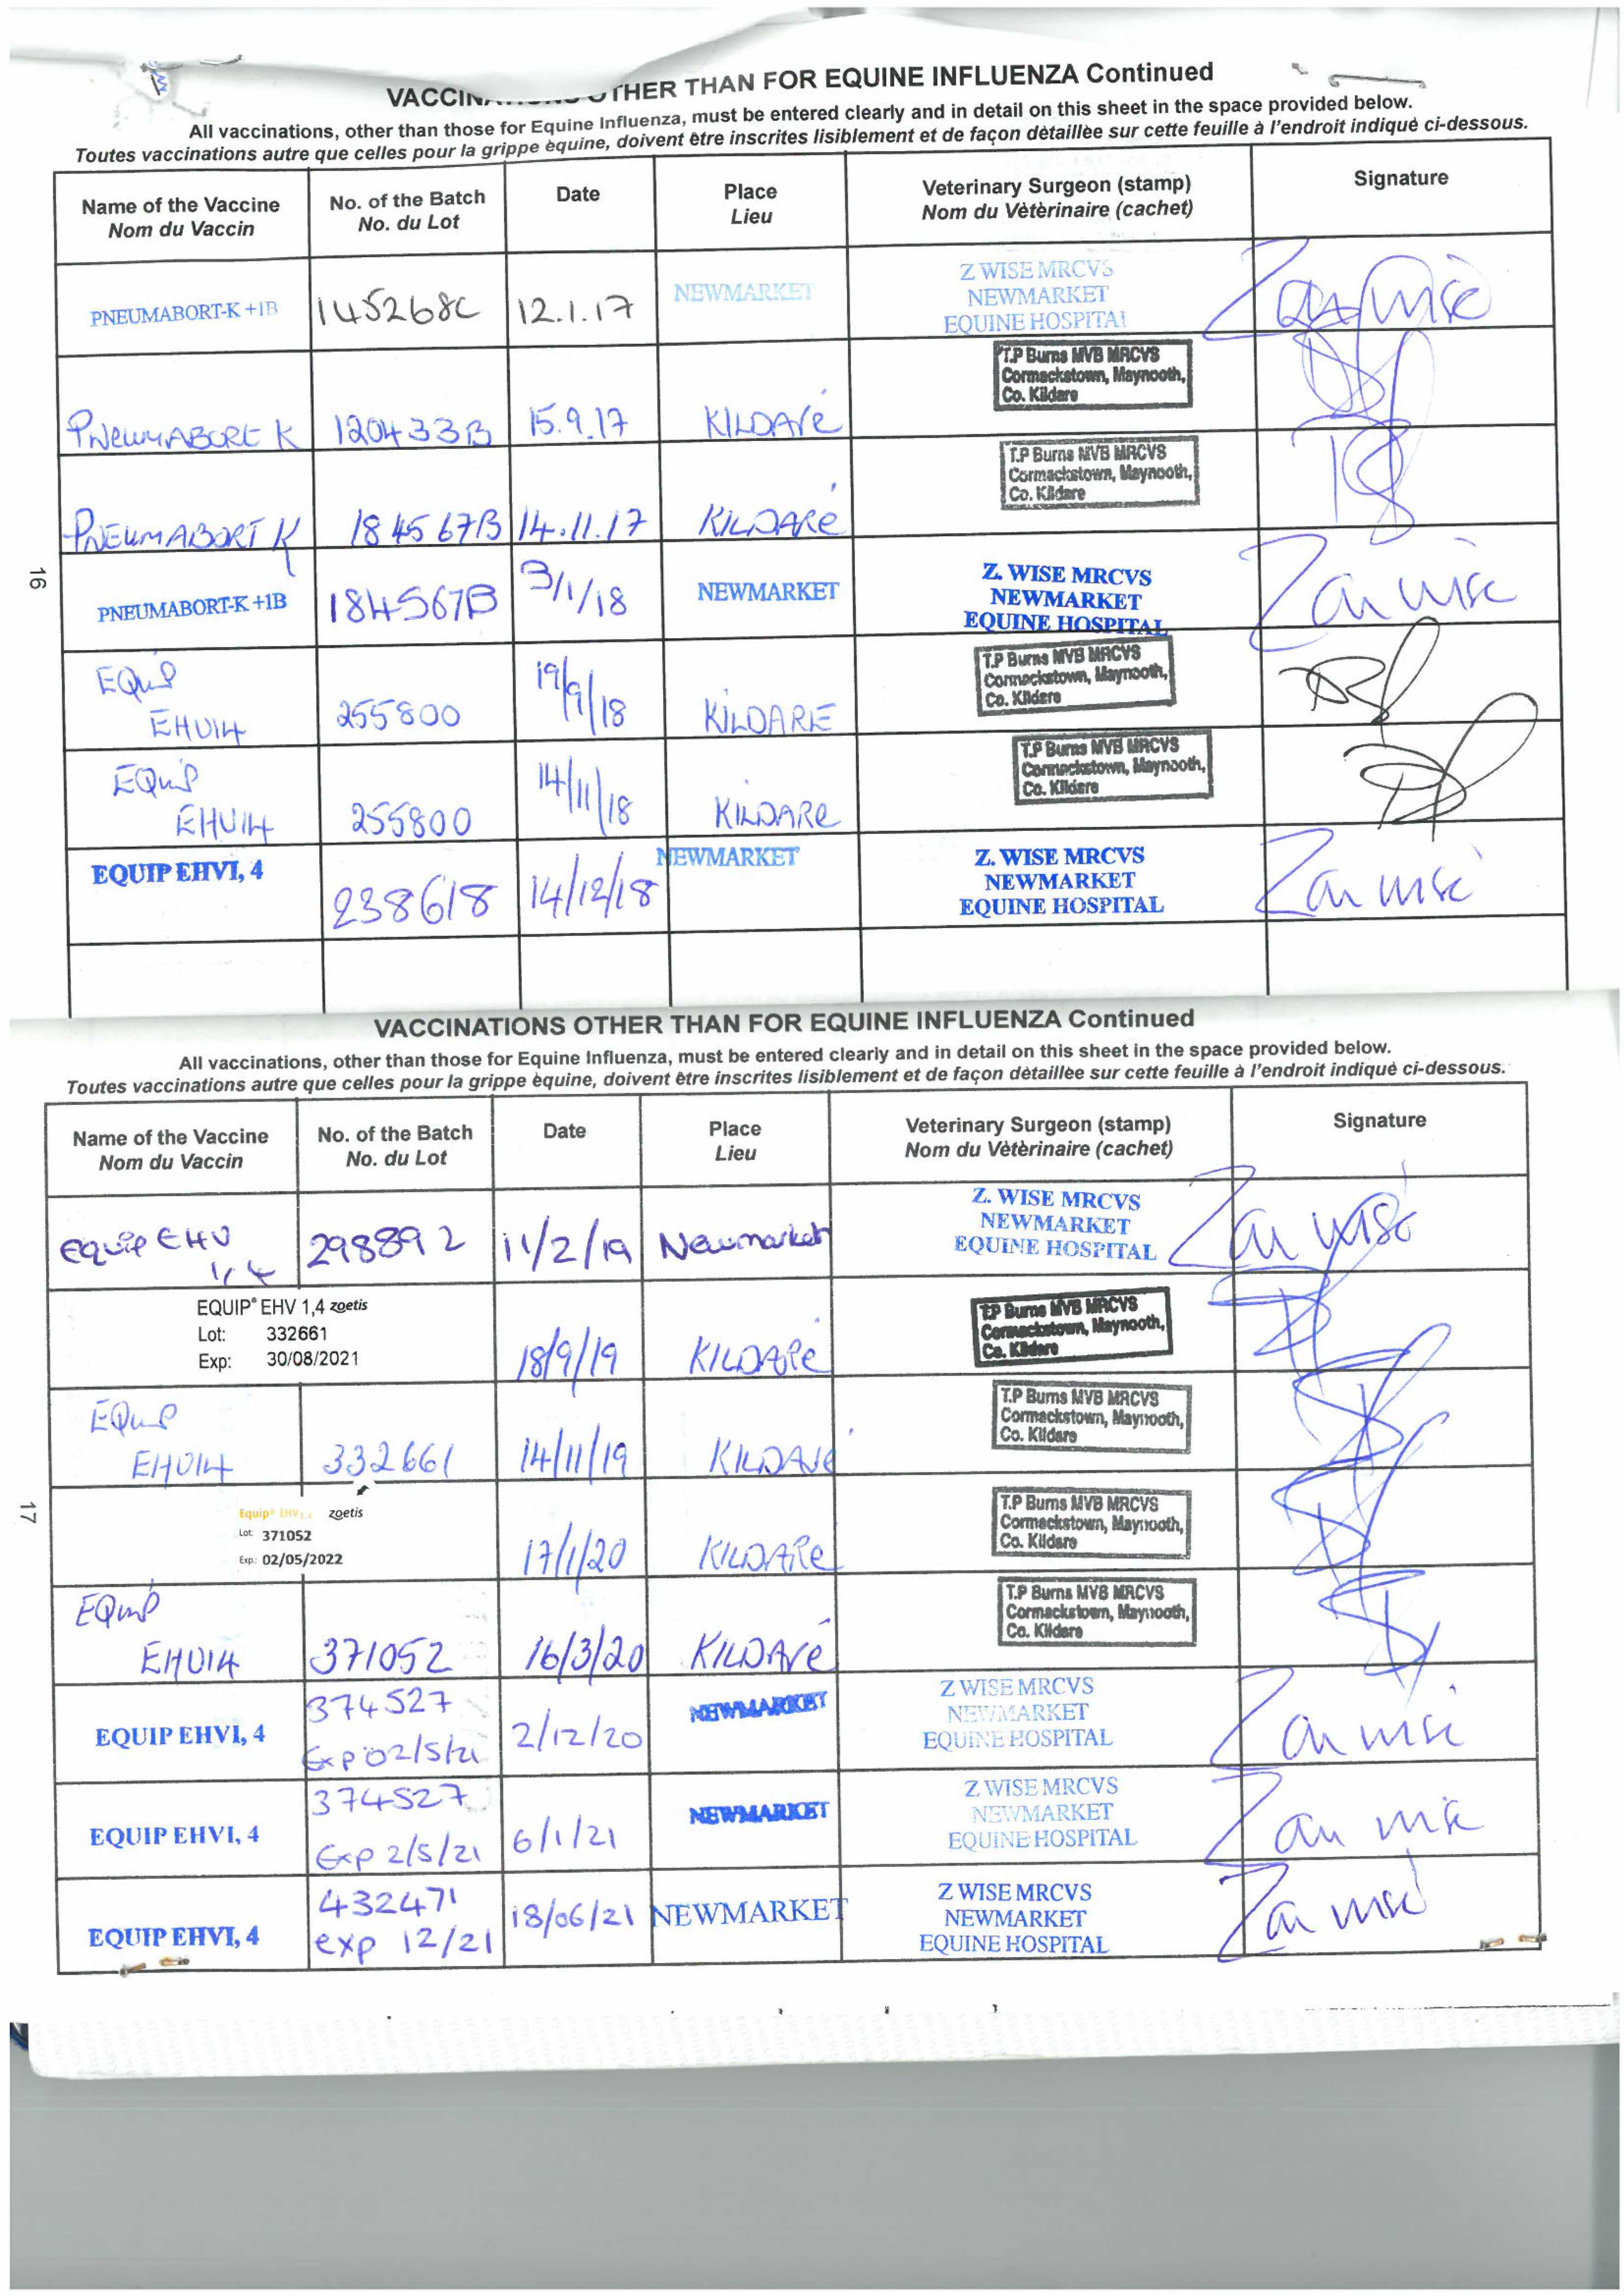 VACCIN OTHER THAN FOR EQUINE INFLUENZA Continued
All vaccinations, other than those for Equine Influenza, must be entered clearly and in detail on this sheet in the space provided below.
Toutes vaccinations autre que celles pour la grippe èquine, doivent ètre inscrites lisiblement et de façon dètaillèe sur cette feuille à l'endroit indiquè ci-dessous.
Name of the Vaccine
Nom du Vaccin
No. of the Batch
No. du Lot
Date
Place
Lieu
Veterinary Surgeon (stamp)
Nom du Vètèrinaire (cachet)
Signature
PNEUMABORT-K +1B
145268C
12.1.17
NEWMARKET
Z WISE MRCVS
NEWMARKET
EQUINE HOSPITAL
Zoe Wise
PNEUMABORT K
120433B
15.9.17
KILDARE
T.P Burns MVB MRCVS
Cormackstown, Maynooth,
Co. Kildare
PNEUMABORT K
184567B
14.11.17
KILDARE
T.P Burns MVB MRCVS
Cormackstown, Maynooth,
Co. Kildare
16
PNEUMABORT-K +1B
184567B
3/1/18
NEWMARKET
Z. WISE MRCVS
NEWMARKET
EQUINE HOSPITAL
EQuiP
EHV14
255800
19/9/18
KILDARE
T.P Burns MVB MRCVS
Cormackstown, Maynooth,
Co. Kildare
EQuiP
EHV14
255800
14/11/18
KILDARE
T.P Burns MVB MRCVS
Cormackstown, Maynooth,
Co. Kildare
EQUIP EHVI, 4
238618
14/12/18
NEWMARKET
Z. WISE MRCVS
NEWMARKET
EQUINE HOSPITAL
VACCINATIONS OTHER THAN FOR EQUINE INFLUENZA Continued
All vaccinations, other than those for Equine Influenza, must be entered clearly and in detail on this sheet in the space provided below.
Toutes vaccinations autre que celles pour la grippe èquine, doivent ètre inscrites lisiblement et de façon dètaillèe sur cette feuille à l'endroit indiquè ci-dessous.
Name of the Vaccine
Nom du Vaccin
No. of the Batch
No. du Lot
Date
Place
Lieu
Veterinary Surgeon (stamp)
Nom du Vètèrinaire (cachet)
Signature
Equip EHV
1,4
298892
11/2/19
Newmarket
Z. WISE MRCVS
NEWMARKET
EQUINE HOSPITAL
EQUIP® EHV 1,4 zoetis
Lot: 332661
Exp: 30/08/2021
18/9/19
KILDARE
T.P Burns MVB MRCVS
Cormackstown, Maynooth,
Co. Kildare
EQuiP
EHV14
332661
14/11/19
KILDARE
T.P Burns MVB MRCVS
Cormackstown, Maynooth,
Co. Kildare
17
Equip® EHV 1,4 zoetis
Lot: 371052
Exp.: 02/05/2022
17/1/20
KILDARE
T.P Burns MVB MRCVS
Cormackstown, Maynooth,
Co. Kildare
EQuiP
EHV14
371052
16/3/20
KILDARE
T.P Burns MVB MRCVS
Cormackstown, Maynooth,
Co. Kildare
EQUIP EHVI, 4
374527
Exp 02/5/21
2/12/20
NEWMARKET
Z WISE MRCVS
NEWMARKET
EQUINE HOSPITAL
EQUIP EHVI, 4
374527
Exp 2/5/21
6/1/21
NEWMARKET
Z WISE MRCVS
NEWMARKET
EQUINE HOSPITAL
EQUIP EHVI, 4
432471
exp 12/21
18/06/21
NEWMARKET
Z WISE MRCVS
NEWMARKET
EQUINE HOSPITAL